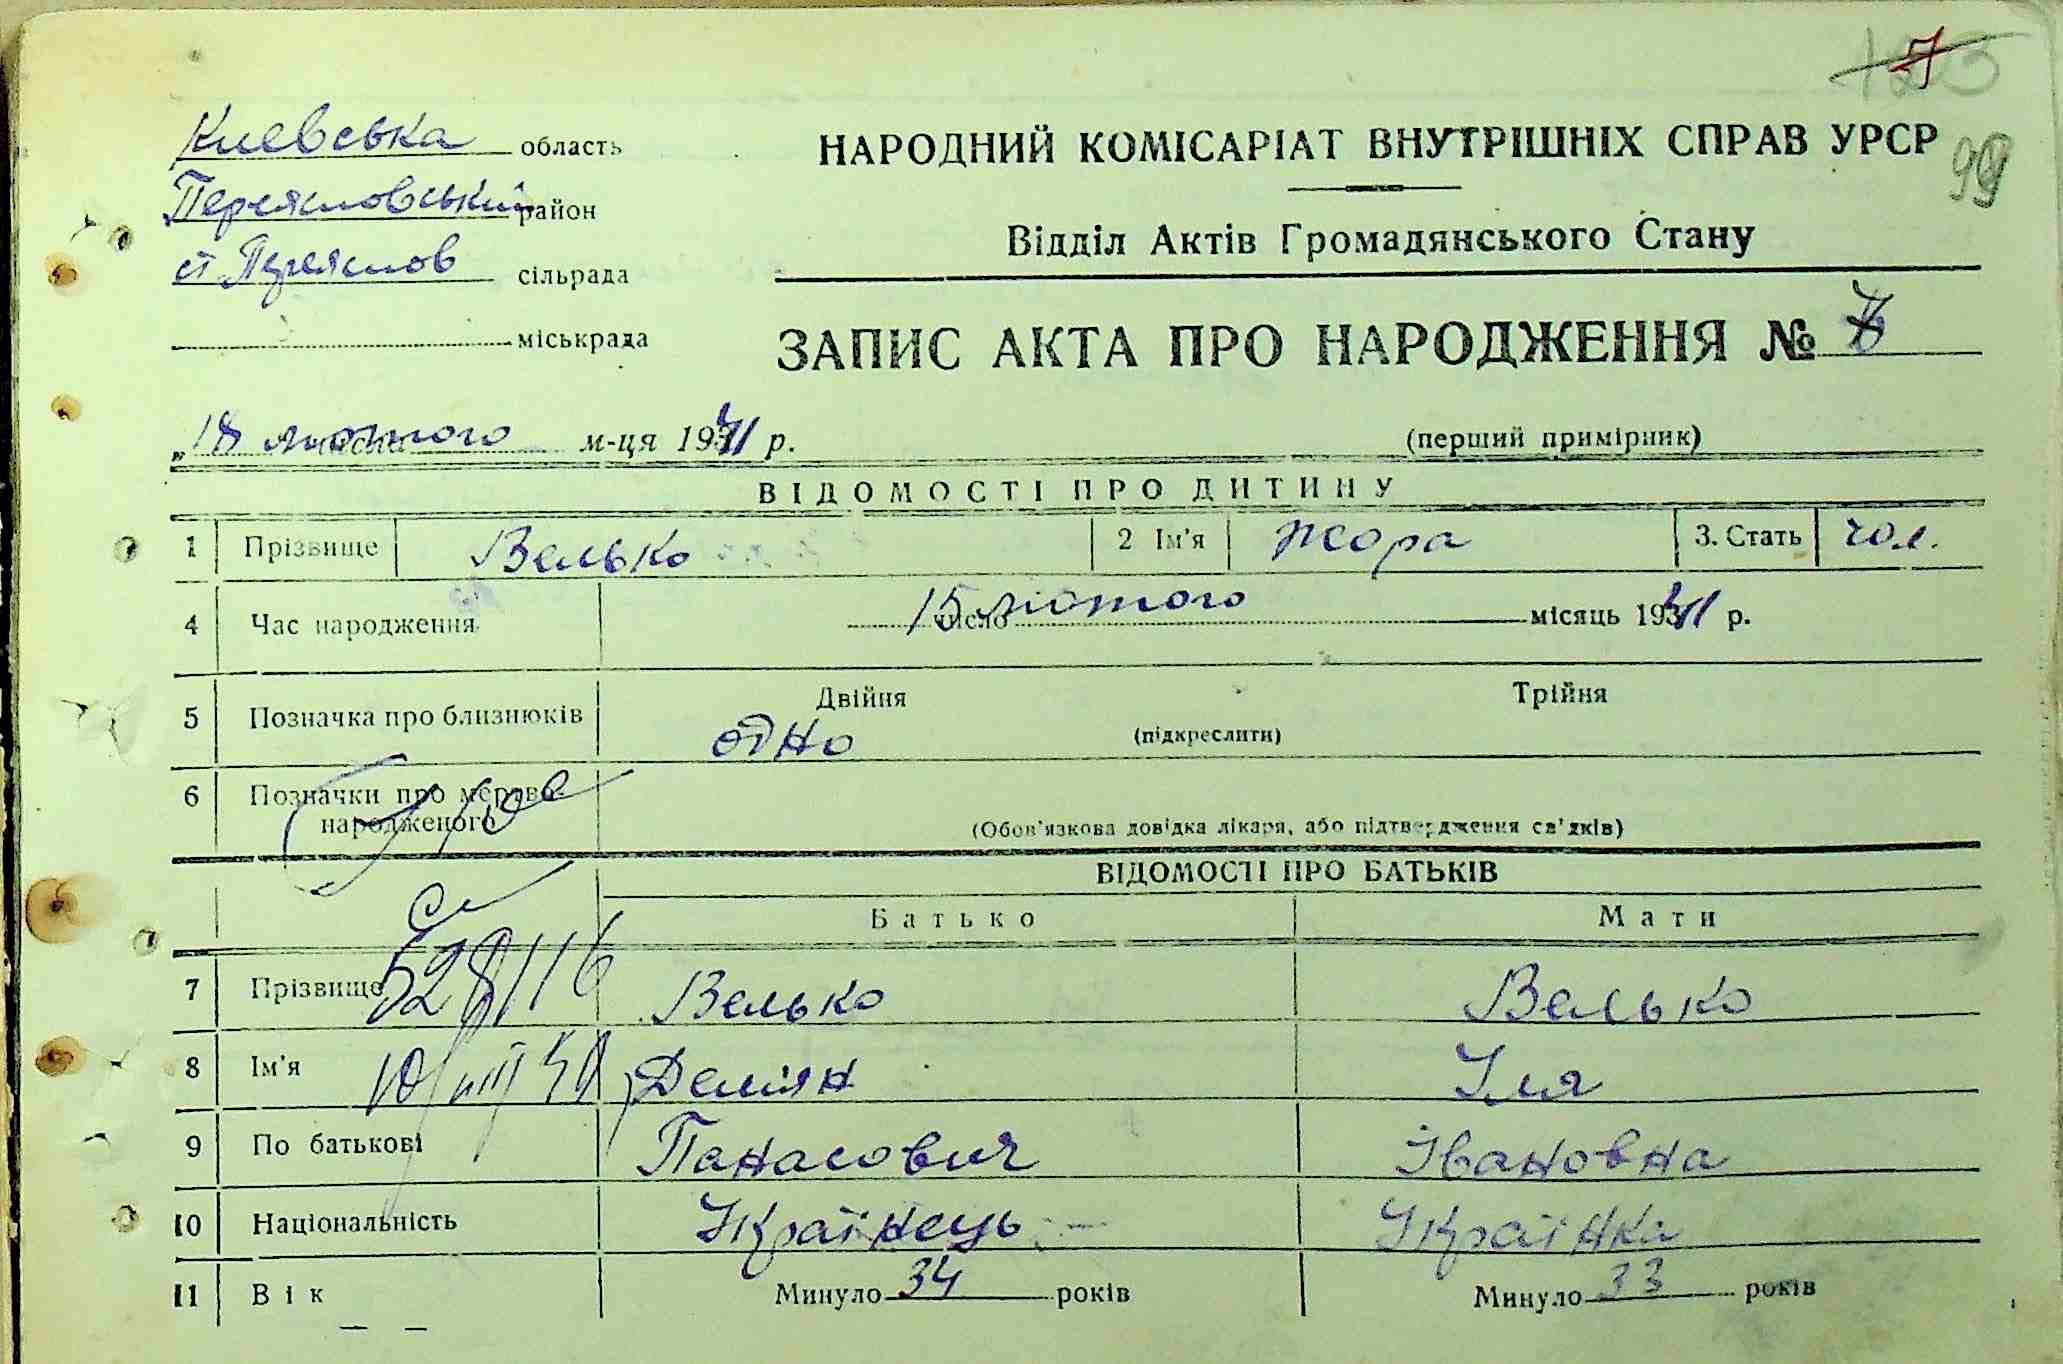 123
7
Киевська область
НАРОДНИЙ КОМІСАРІАТ ВНУТРІШНІХ СПРАВ УРСР
99
Переясловський район
Відділ Актів Громадянського Стану
ст. Переяслов сільрада
міськрада
ЗАПИС АКТА ПРО НАРОДЖЕННЯ № 7
„18 лютого м-ця 1941 р.
(перший примірник)
ВІДОМОСТІ ПРО ДИТИНУ
1 Прізвище Велько 2 Ім'я Жора 3. Стать чол.
4 Час народження 15 число лютого місяць 1941 р.
5 Позначка про близнюків Двійня Трійня
одно (підкреслити)
6 Позначки про мертво-
народженого (Обов'язкова довідка лікаря, або підтвердження св'дків)
ВІДОМОСТІ ПРО БАТЬКІВ
Батько Мати
7 Прізвище Велько Велько
8 Ім'я Демян Уля
9 По батькові Панасович Івановна
10 Національність Українець Українка
11 Вік Минуло 34 років Минуло 33 років